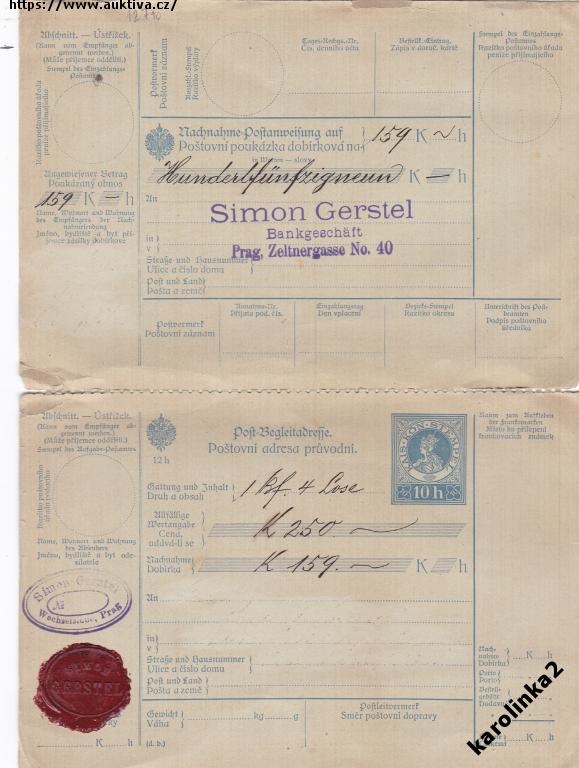 https://www.auktiva.cz/
Abschnitt. — Ústřižek.
(Kann vom Empfänger abgetrennt werden.)
(Může příjemce odděliti.)
Stempel des Einzahlungs-Postamts
Razítko poštovního úřadu peníze přijímajícího
Postvermerk
Poštovní záznam
Auszahl.-Stempel
Razítko výplaty
Tages-Rechgs.-Nr.
Čís. denního účtu
Bestellk.-Eintrag.
Zápis v doruč. kartě
Stempel des Einzahlungs-Postamts
Razítko poštovního úřadu peníze přijímajícího
Nachnahme-Postanweisung auf
Poštovní poukázka dobírková na
159 K ~ h
in Worten — slovy
Hundertfünfzigneun K — h
Angewiesener Betrag
Poukázaný obnos
159 K — h
Name, Wohnort und Wohnung des Empfängers der Nachnahmesendung
Jméno, bydliště a byt příjemce zásilky dobírkové
An
Simon Gerstel
Bankgeschäft
Prag, Zeltnergasse No. 40
in
v
Straße und Hausnummer
Ulice a číslo domu
Post und Land
Pošta a země
Postvermerk
Poštovní záznam
Annahme-Nr.
Přijata pod. čís.
Einzahlungstag
Den vplacení
Bezirks-Stempel
Razítko okresu
Unterschrift des Postbeamten
Podpis poštovního úředníka
Abschnitt. — Ústřižek.
(Kann vom Empfänger abgetrennt werden.)
(Může příjemce odděliti.)
Stempel des Aufgabe-Postamtes
Razítko poštovního úřadu podacího
12 h
Post-Begleitadresse.
Poštovní adresa průvodní.
10 h
Raum zum Aufkleben der Frankomarken
Místo ku přilepení frankovacích známek
Gattung und Inhalt
Druh a obsah
1 Bf. 4 Lose
Allfällige Wertangabe
Cena, udává-li se
K 250. ~
Nachnahme
Dobírka
K 159. ~
K h
Name, Wohnort und Wohnung des Absenders
Jméno, bydliště a byt odesilatele
Simon Gerstel
Wechselstube, Prag
GERSTEL
An
in
v
Straße und Hausnummer
Ulice a číslo domu
Post und Land
Pošta a země
Nachnahme
Dobírka
K. h
Porto
Porto
Bestellgebühr
K. h
Gewicht
Váha
kg g
Postleitvermerk
Směr poštovní dopravy
K h
(d. b.)
karolinka2